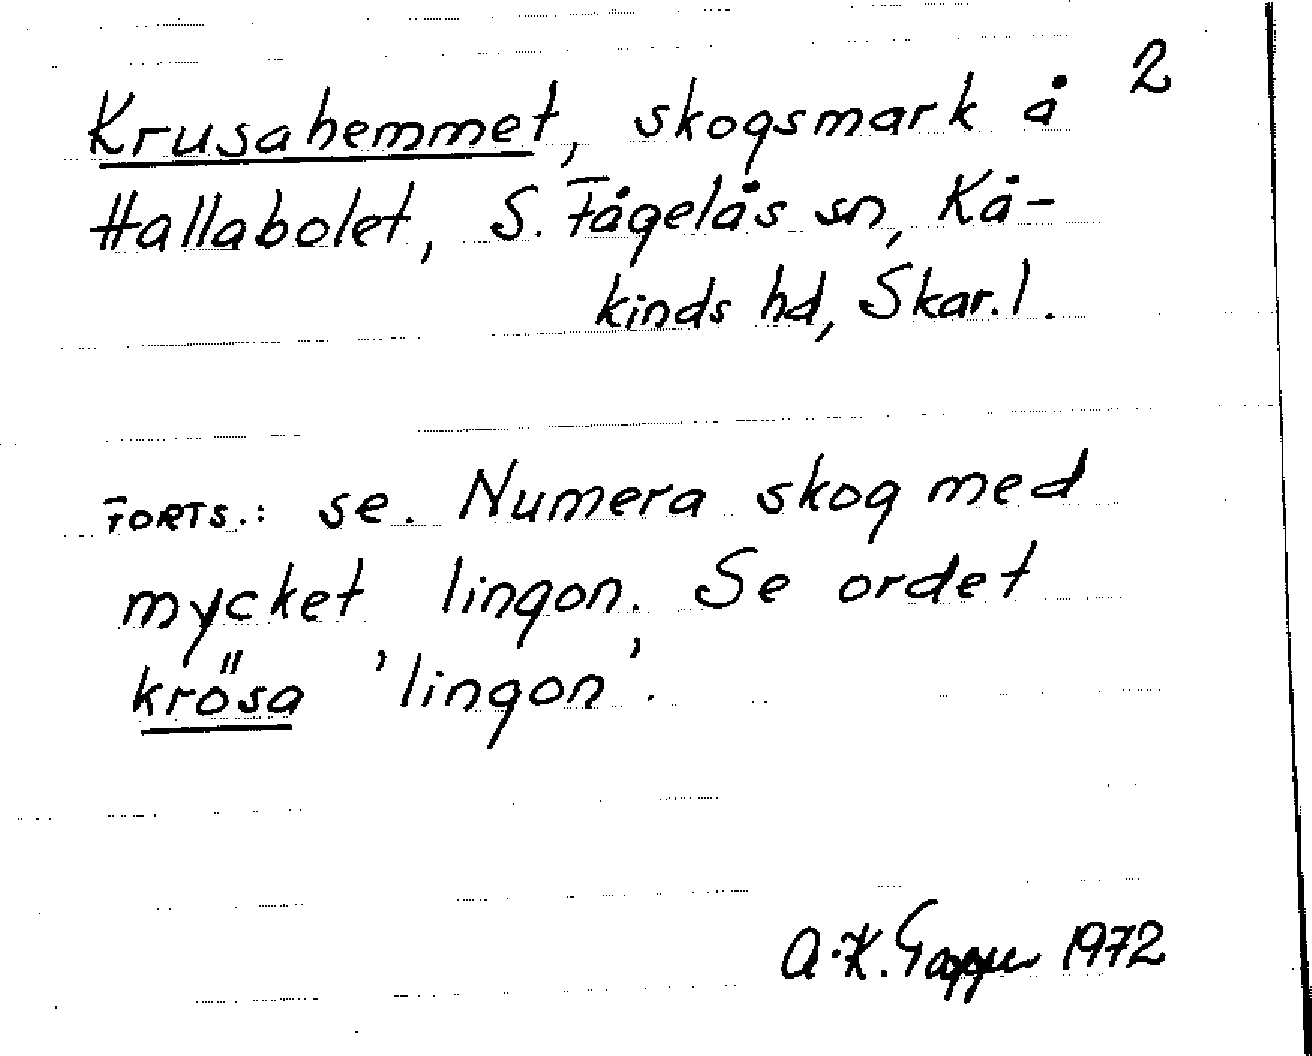 2
Krusahemmet, skogsmark å
Hallabolet, S. Fågelås sn, Kå-
kinds hd, Skar. l.
FORTS.: se. Numera skog med
mycket lingon. Se ordet
krösa 'lingon'.
A.-K. 1972